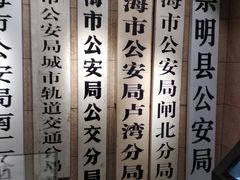 市公安局南
市公安局城市轨道交通分局
海市公安局公交分局
海市公安局卢湾分局
海市公安局闸北分局
崇明县公安局